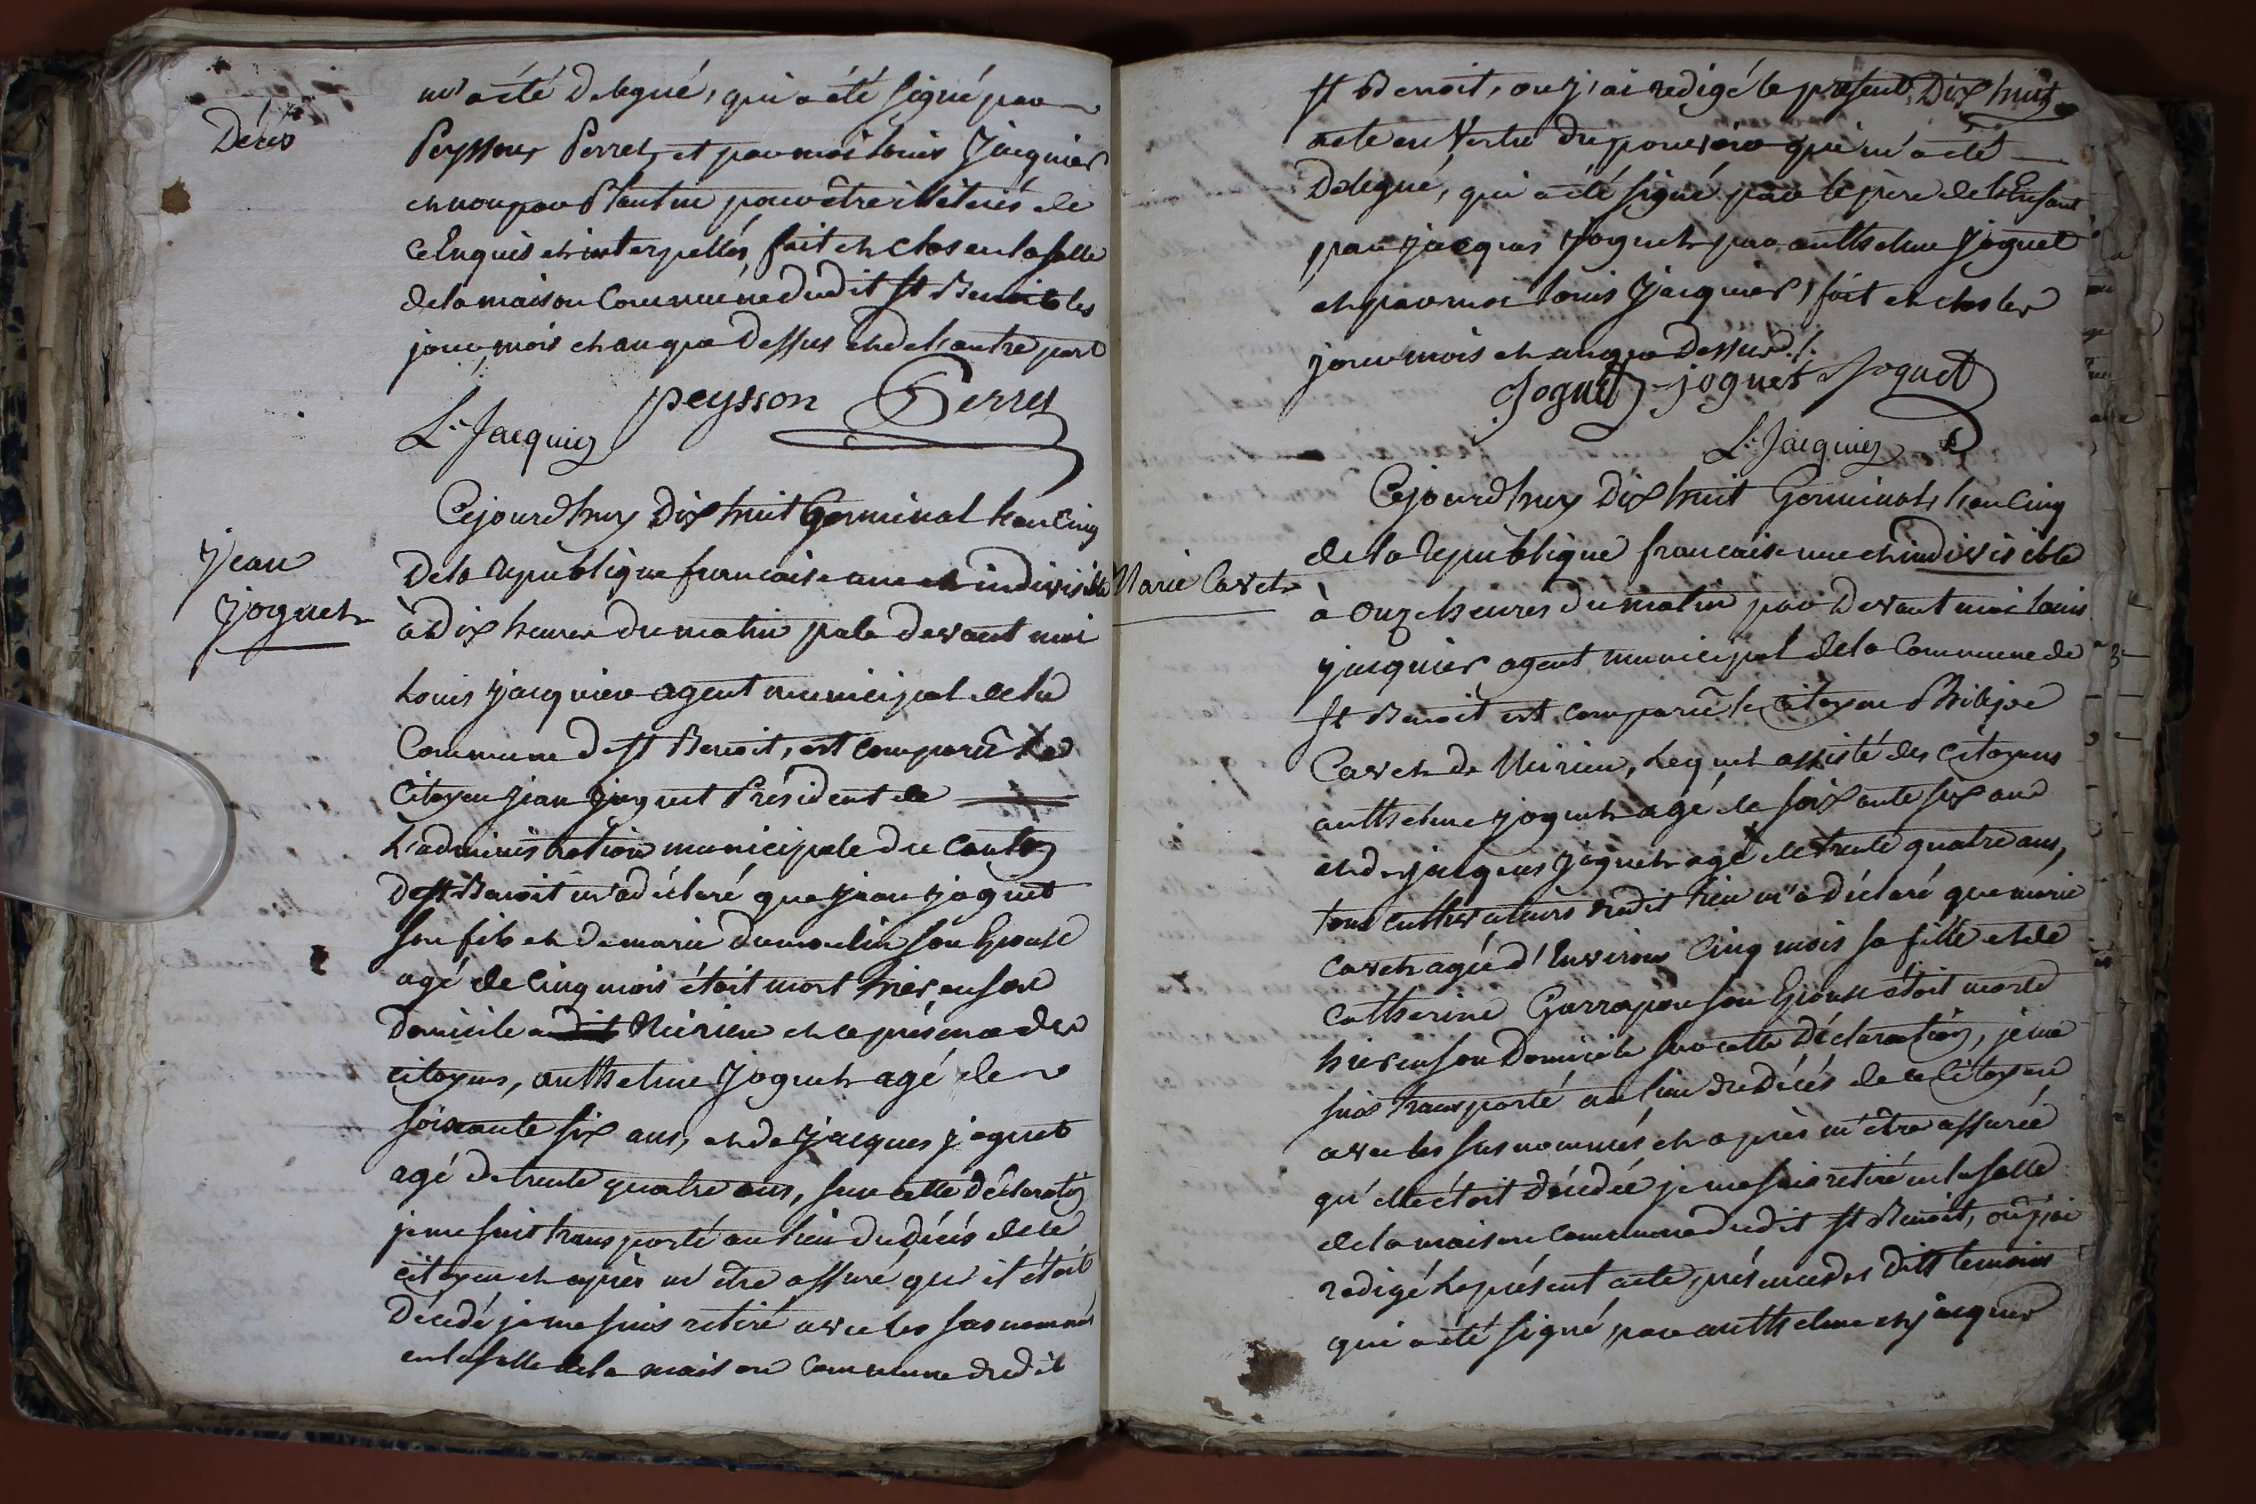 Décès
m'a été délegué, qui a été signé par
Peysson Perret, et par moi Louis Jacquier
et non par Plantin pour être illiterés de
ce Enquis et interpellés, fait et clos en la salle
de la maison Commune dudit St Benoit les
jour, mois et an que dessus et de l'autre part
L. Jacquier peysson Perret
Jean
Joguet
Cejourdhuy Dix huit Germinal l'an Cinq
De la République francaise une et indivisible
à dix heures du matin par devant moi
Louis Jacquier agent municipal de la
Commune de St Benoit, est comparû le
Citoyen Jean Joguet Président de
L'administration municipale du canton
de St Benoit m'a déclaré que Jean Joguet
son fils et de marie dumoulin son Epouse
agé de Cinq mois étoit mort hier en son
Domicile a Neirieu en la présence des
citoyens, anthelme Joguet agé de
soixante six ans, et de Jacques Joguet
agé de trente quatre ans, sur cette déclaration
je me suis transporté au lieu du décès de le
citoyen et après m'être assuré qu'il étoit
Décédé je me suis retiré avec les susnommés
en la salle de la maison commune dudit
St Benoit, ou j'ai redigé le présent Dix huit
acte en Vertu du pouvoir qui m'a été
Délegué, qui a été signé par le pere de l'Enfant
par Jacques Joguet par anthelme Joguet
et par moi Louis Jacquier, fait et clos les
jour mois et an que dessus ./.
Joguet joguet Joguet
L. Jacquier
Marie Cavet
Cejourdhuy Dix huit Germinal, l'an Cinq
de la Republique francaise une et indivisible
à onze heures du matin par devant moi Louis
Jacquier agent municipal de la Commune de
St Benoit est comparû le Citoyen Philipe
Cavet de Neirieu, lequel assisté des Citoyens
anthelme Joguet agé de soixante six ans
et de Jacques Joguet agé de trente quatre ans,
tous cultivateurs dudit lieu m'a déclaré que marie
Cavet agée d'Environ Cinq mois sa fille et de
Catherine Garrapon son Epouse étoit morte
hier en son Domicile sur cette Déclaration, je me
suis transporté au lieu du Décés de le Citoyen
avec les susnommés, et après m'être assurée
qu'elle étoit décédée je me suis retiré en la salle
de la maison commune dudit St Benoit, ou j'ai
redigé le présent acte, présence des dits temoins
qui a été signé, par anthelme et jacques